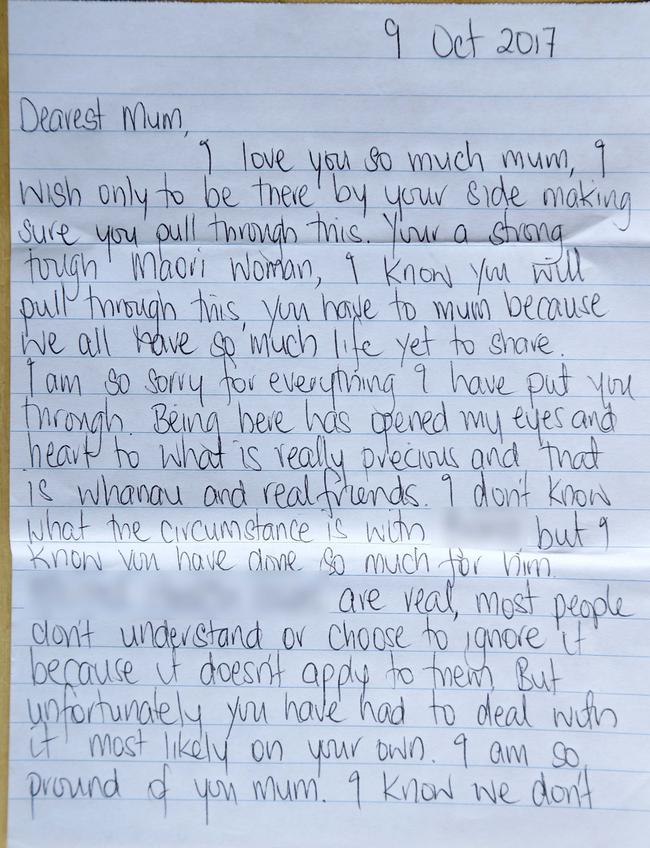 9 Oct 2017
Dearest Mum,
I love you so much mum, I
wish only to be there by your side making
sure you pull through this. Your a strong
tough Maori Woman, I know you will
pull through this, you have to mum because
we all have so much life yet to share.
I am so sorry for everything I have put you
through. Being here has opened my eyes and
heart to what is really precious and that
is whanau and real friends. I don't know
what the circumstance is with but I
know you have done so much for him
are real, most people
don't understand or choose to ignore it
because it doesn't apply to them. But
unfortunately you have had to deal with
it most likely on your own. I am so
pround of you mum. I know we don't